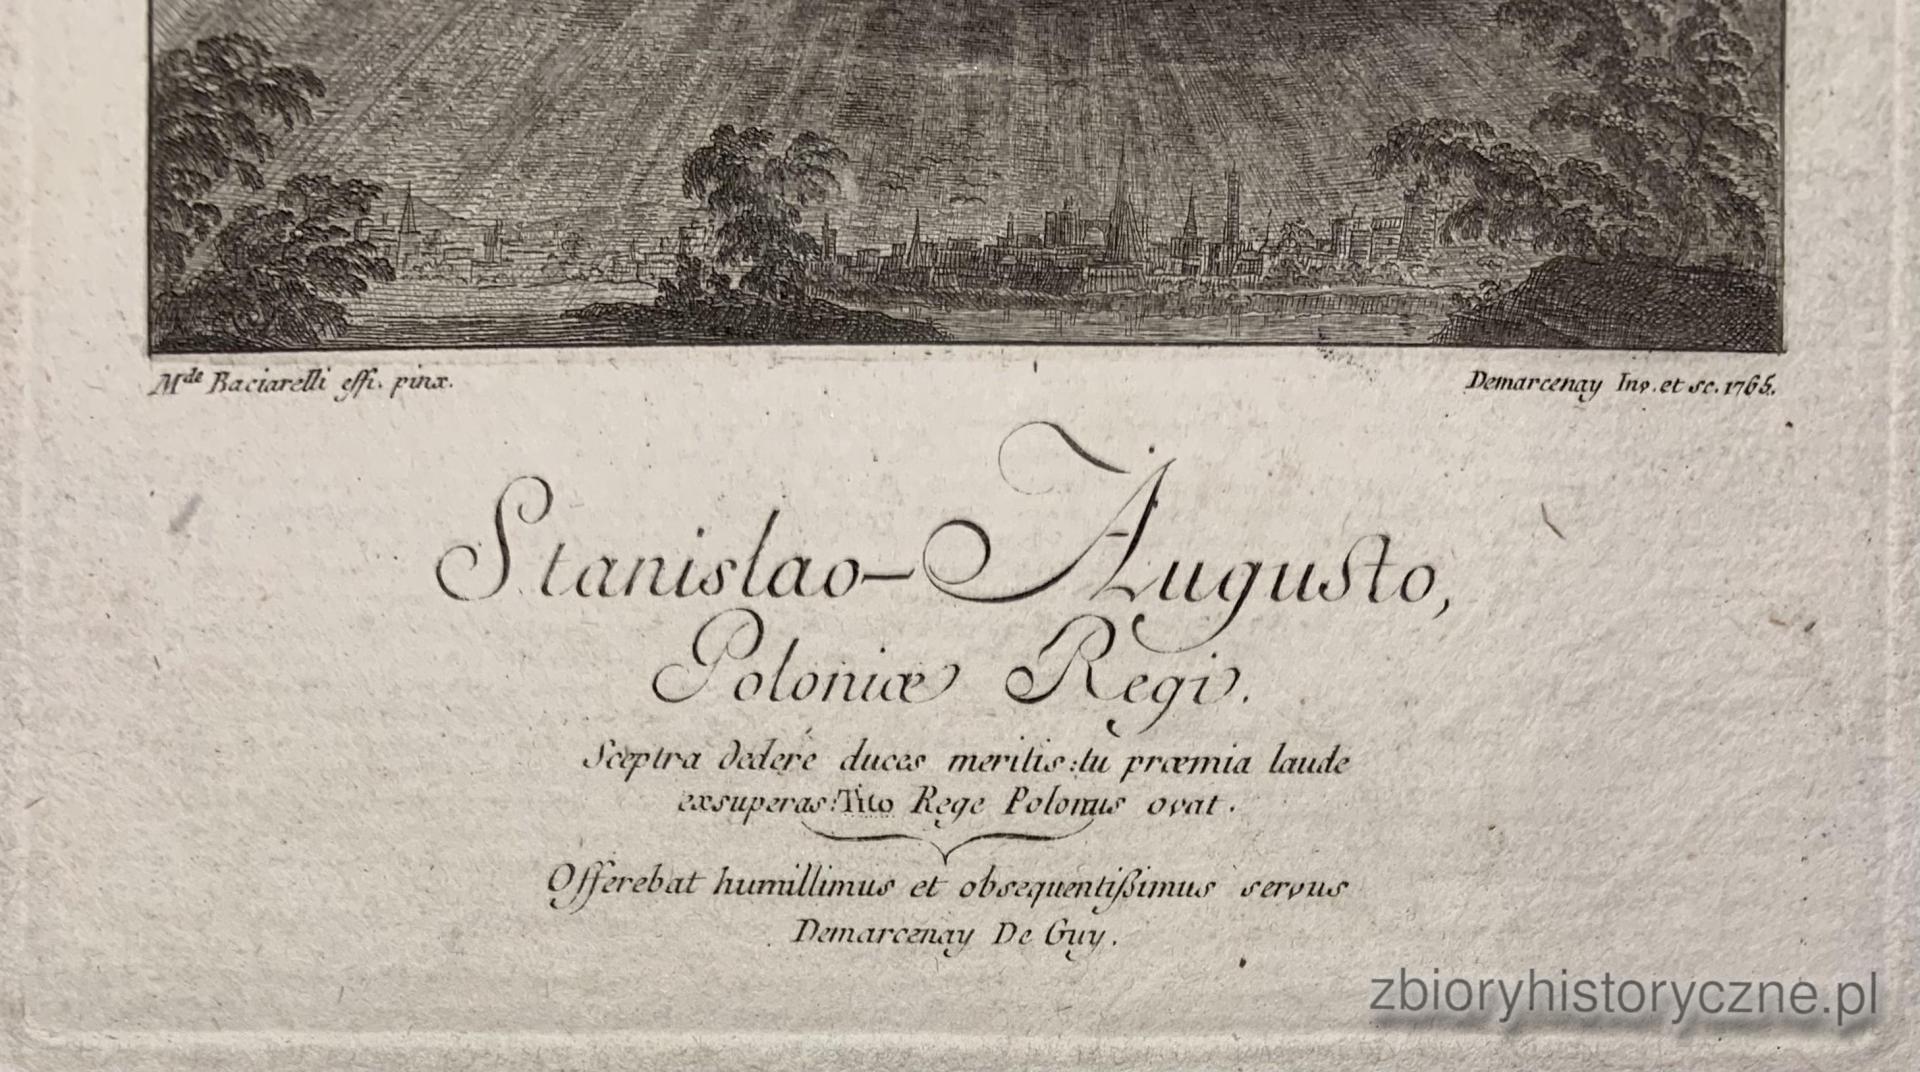 Mde Baciarelli effi. pinx.
Demarcenay Inv. et sc. 1765.
Stanislao-Augusto,
Poloniæ Regi.
Sceptra dedere duces meritis: tu præmia laude
exsuperas: Tito Rege Polonus ovat.
Offerebat humillimus et obsequentißimus servus
Demarcenay De Guy.
zbioryhistoryczne.pl